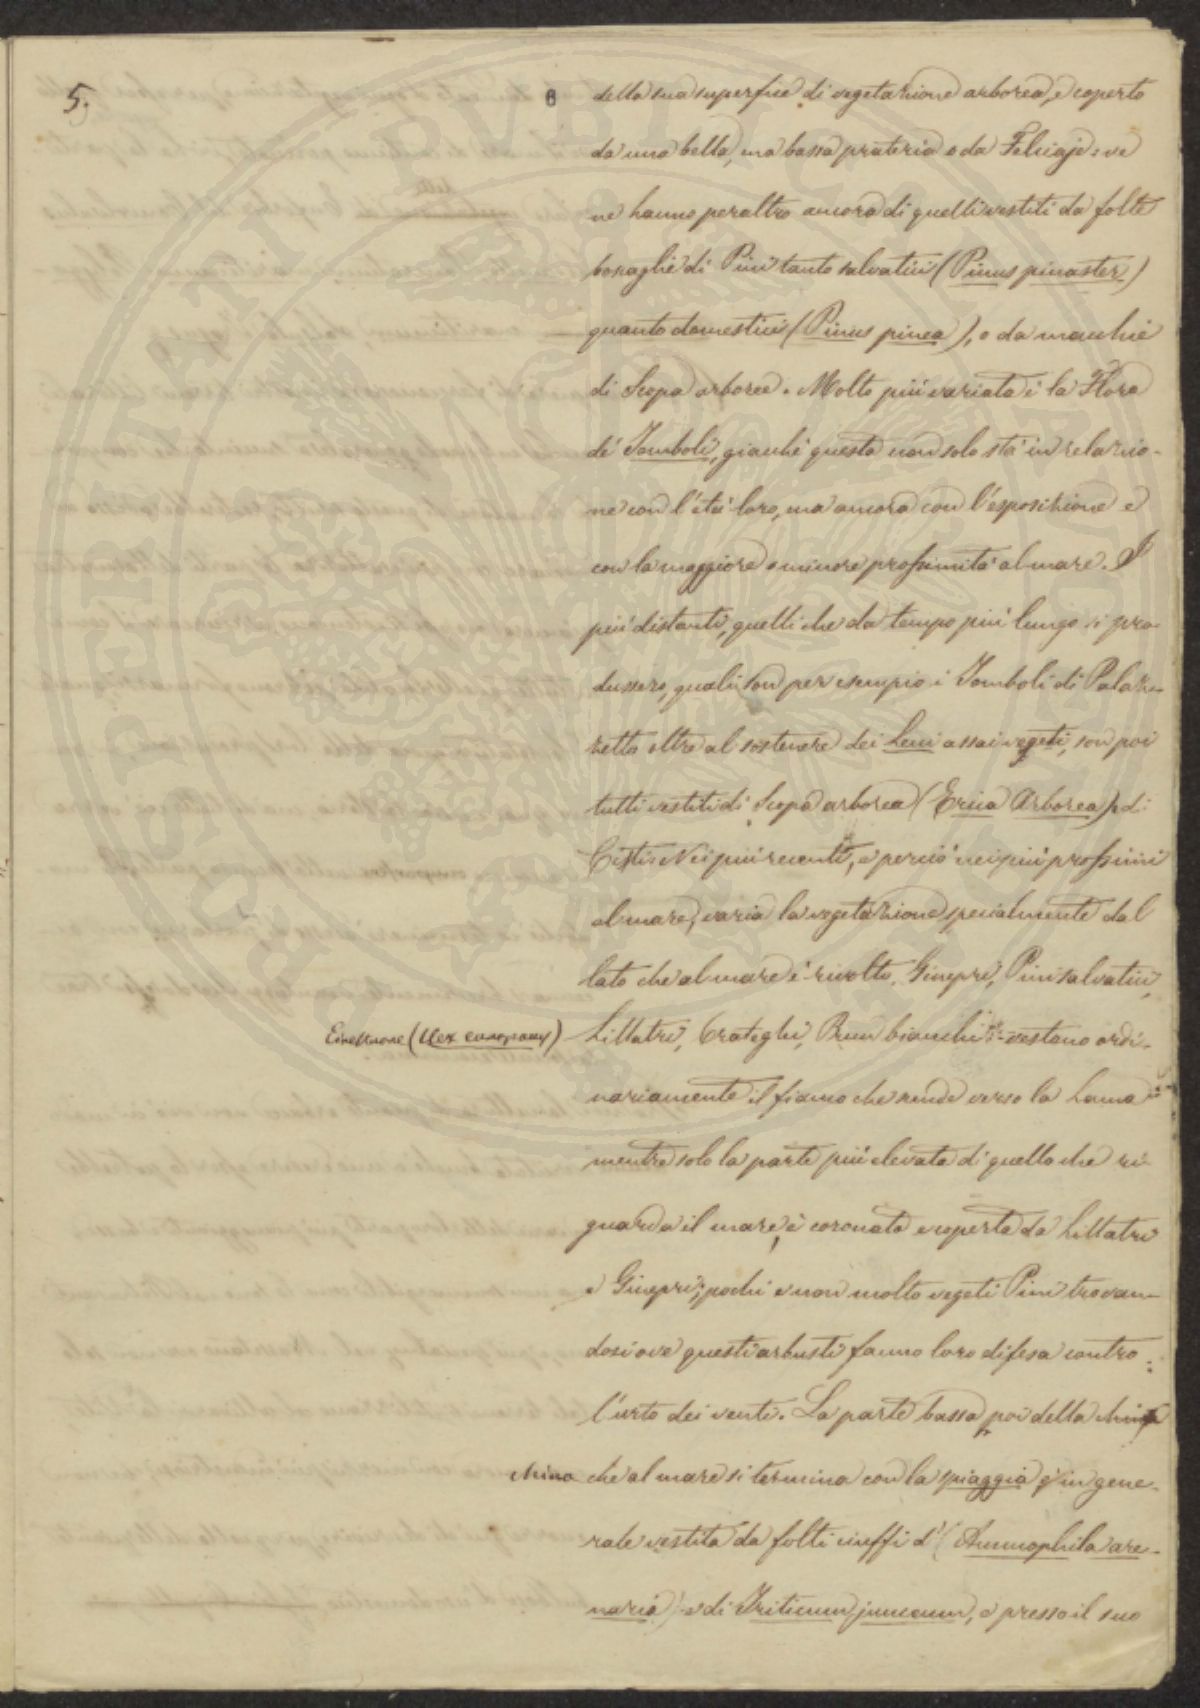 5.
della sua superfice di vegetazione arborea, e coperto
da una bella, ma bassa prateria o da Felciaje: ve
ne hanno peraltro ancora di quelli vestiti da folte
boscaglie di Pini tanto salvatici (Pinus pinaster)
quanto domestici (Pinus pinea), o da macchie
di Scopa arborea. Molto più variata è la Flora
de' Tomboli, giacchè questa non solo stà in relazio-
ne con l'età loro, ma ancora con l'esposizione e
con la maggiore o minore prossimità al mare. I
più distanti, quelli che da tempo più lungo si pro-
dussero, quali son per esempio i Tomboli di Palaz-
zetto oltre al sostenere dei Lecci assai vegeti, son poi
tutti vestiti di Scopa arborea (Erica Arborea) e di
Cisti. Nei più recenti, e perciò nei più prossimi
al mare, varia la vegetazione specialmente dal
lato che al mare è rivolto. Ginepri, Pini salvatici,
Ginestrone (Ulex europaeus)
Lillatri, Crateghi, Prun bianchi vestono ordi-
nariamente il fianco che rende verso la Lama
mentre solo la parte più elevata di quello che ri-
guarda il mare, è coronata e coperta da Lillatri
e Ginepri; pochi e non molto vegeti Pini trovan-
dosi ove questi arbusti fanno loro difesa contro
l'urto dei venti. La parte bassa poi della
china che al mare si termina con la spiaggia è in gene-
rale vestita da folti ciuffi d' (Ammophila are-
naria) e di Triticum junceum, e presso il suo